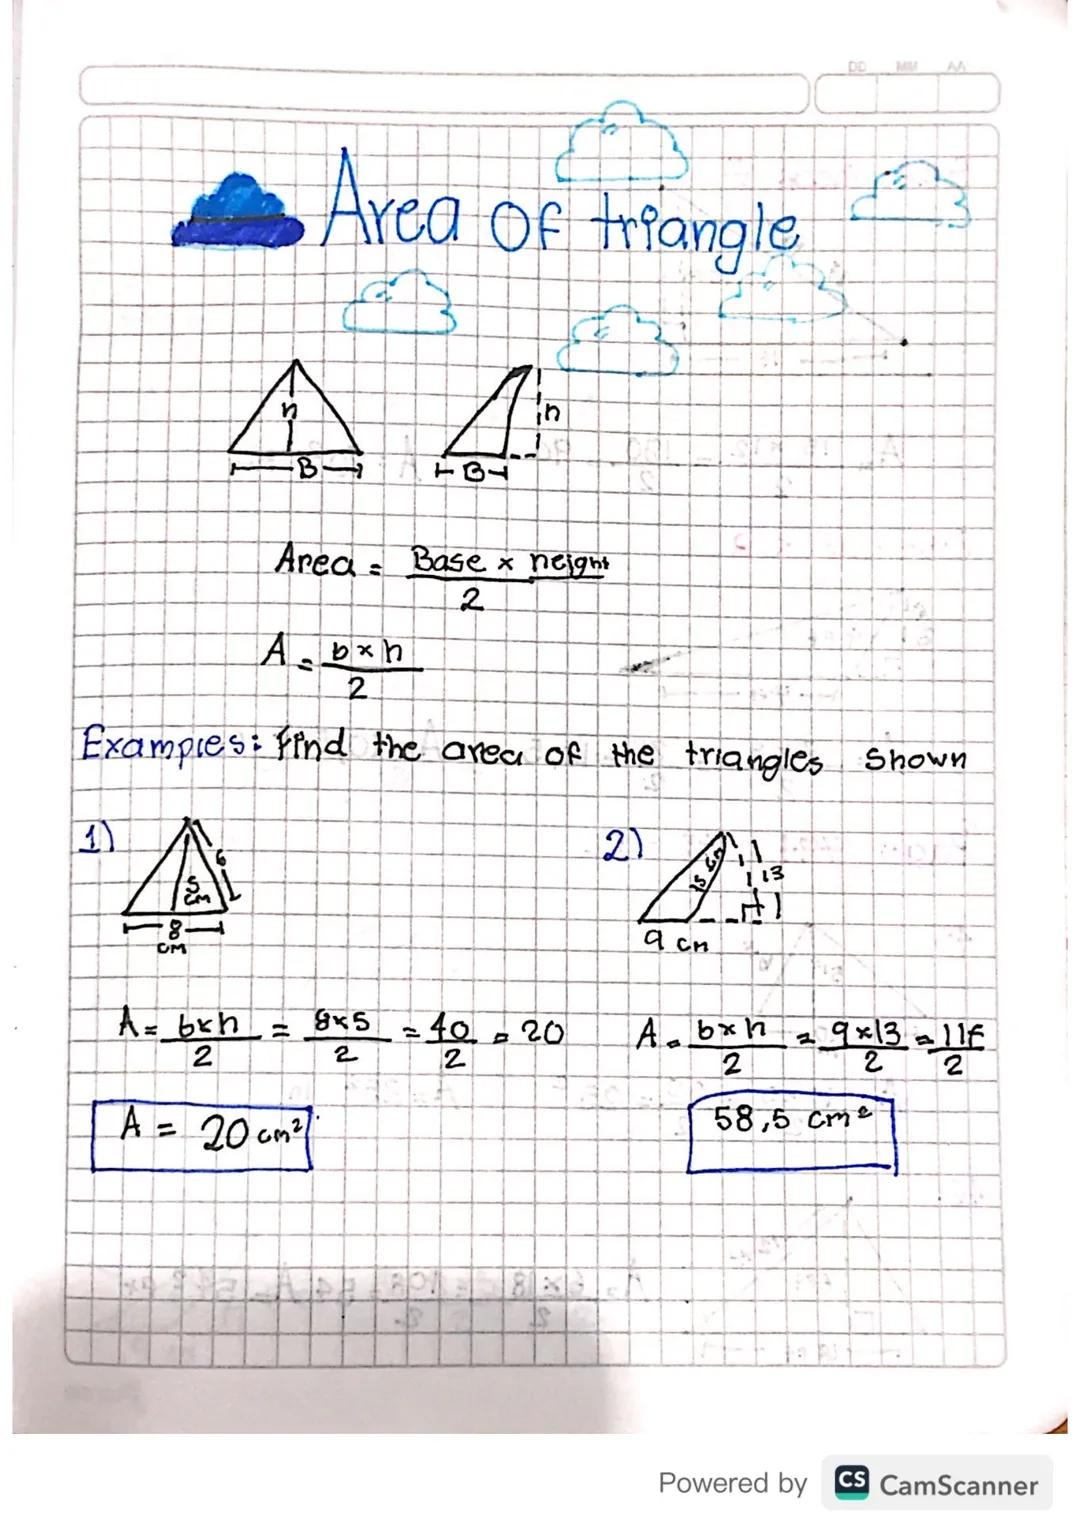 DD MM AA
Area of triangle
h
h
B
B
Area = Base x height
2
A = b x h
2
Examples: Find the area of the triangles shown
1)
2)
6
5
cm
8
cm
15 cm
13
9 cm
A = b x h = 8 x 5 = 40 = 20
2 2 2
A = b x h = 9 x 13 = 117
2 2 2
A = 20 cm²
58,5 cm²
Powered by CS CamScanner